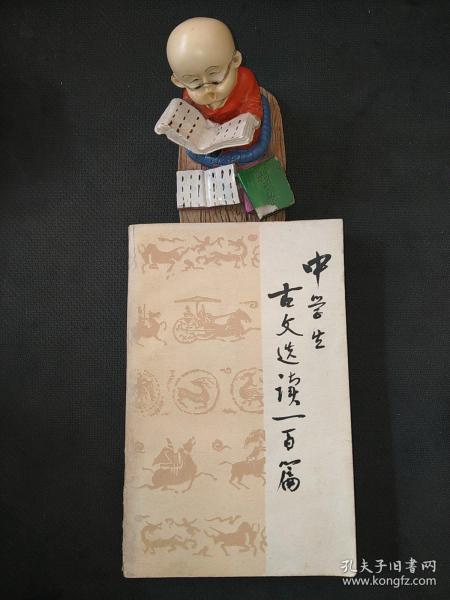 中学生
古文选读一百篇
孔夫子旧书网
www.kongfz.com